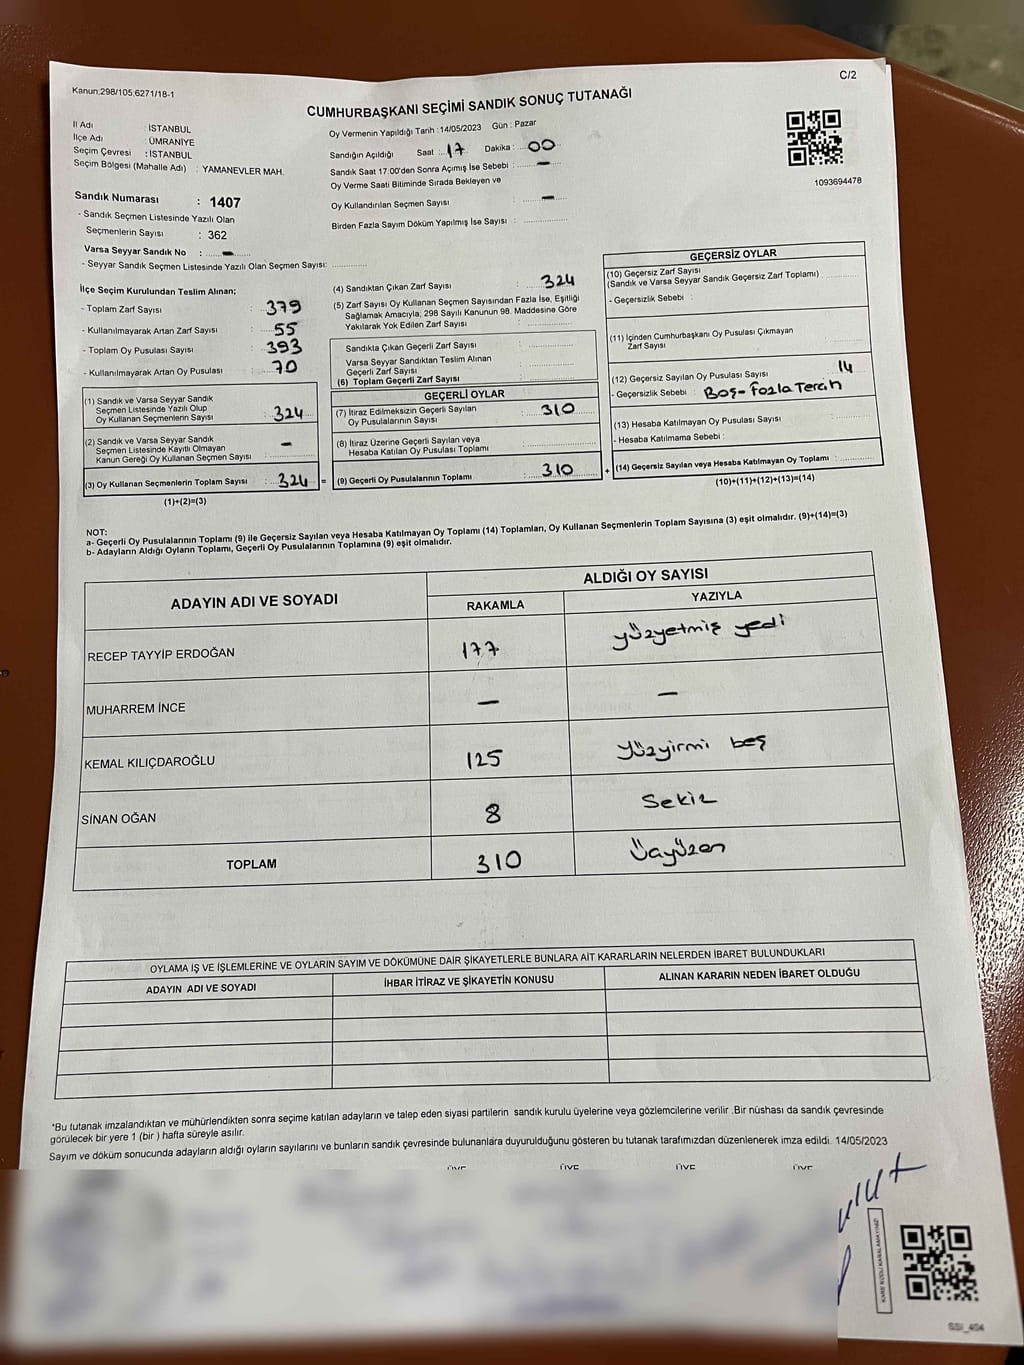 C/2
Kanun:298/105,6271/18-1
CUMHURBAŞKANI SEÇİMİ SANDIK SONUÇ TUTANAĞI
İl Adı : İSTANBUL
İlçe Adı : ÜMRANİYE
Seçim Çevresi : İSTANBUL
Seçim Bölgesi (Mahalle Adı) : YAMANEVLER MAH.
Sandık Numarası : 1407
- Sandık Seçmen Listesinde Yazılı Olan
Seçmenlerin Sayısı : 362
Varsa Seyyar Sandık No : -
- Seyyar Sandık Seçmen Listesinde Yazılı Olan Seçmen Sayısı:
Oy Vermenin Yapıldığı Tarih :14/05/2023 Gün : Pazar
Sandığın Açıldığı Saat : 17 Dakika : 00
Sandık Saat 17:00'den Sonra Açımış İse Sebebi : -
Oy Verme Saati Bitiminde Sırada Bekleyen ve
Oy Kullandırılan Seçmen Sayısı : -
Birden Fazla Sayım Döküm Yapılmış İse Sayısı :
1093694478
İlçe Seçim Kurulundan Teslim Alınan;
- Toplam Zarf Sayısı : 379
- Kullanılmayarak Artan Zarf Sayısı : 55
- Toplam Oy Pusulası Sayısı : 393
- Kullanılmayarak Artan Oy Pusulası : 70
(1) Sandık ve Varsa Seyyar Sandık
Seçmen Listesinde Yazılı Olup
Oy Kullanan Seçmenlerin Sayısı : 324
(2) Sandık ve Varsa Seyyar Sandık
Seçmen Listesinde Kayıtlı Olmayan
Kanun Gereği Oy Kullanan Seçmen Sayısı : -
(3) Oy Kullanan Seçmenlerin Toplam Sayısı : 324 =
(1)+(2)=(3)
(4) Sandıktan Çıkan Zarf Sayısı : 324
(5) Zarf Sayısı Oy Kullanan Seçmen Sayısından Fazla İse, Eşitliği
Sağlamak Amacıyla, 298 Sayılı Kanunun 98. Maddesine Göre
Yakılarak Yok Edilen Zarf Sayısı :
Sandıkta Çıkan Geçerli Zarf Sayısı :
Varsa Seyyar Sandıktan Teslim Alınan
Geçerli Zarf Sayısı :
(6) Toplam Geçerli Zarf Sayısı :
GEÇERLİ OYLAR
(7) İtiraz Edilmeksizin Geçerli Sayılan
Oy Pusulalarının Sayısı : 310
(8) İtiraz Üzerine Geçerli Sayılan veya
Hesaba Katılan Oy Pusulası Toplamı :
(9) Geçerli Oy Pusulalarının Toplamı : 310 +
GEÇERSİZ OYLAR
(10) Geçersiz Zarf Sayısı
(Sandık ve Varsa Seyyar Sandık Geçersiz Zarf Toplamı) :
- Geçersizlik Sebebi :
(11) İçinden Cumhurbaşkanı Oy Pusulası Çıkmayan
Zarf Sayısı :
(12) Geçersiz Sayılan Oy Pusulası Sayısı : 14
- Geçersizlik Sebebi : Boş-Fazla Tercih
(13) Hesaba Katılmayan Oy Pusulası Sayısı :
- Hesaba Katılmama Sebebi :
(14) Geçersiz Sayılan veya Hesaba Katılmayan Oy Toplamı :
(10)+(11)+(12)+(13)=(14)
NOT:
a- Geçerli Oy Pusulalarının Toplamı (9) ile Geçersiz Sayılan veya Hesaba Katılmayan Oy Toplamı (14) Toplamları, Oy Kullanan Seçmenlerin Toplam Sayısına (3) eşit olmalıdır. (9)+(14)=(3)
b- Adayların Aldığı Oyların Toplamı, Geçerli Oy Pusulalarının Toplamına (9) eşit olmalıdır.
ADAYIN ADI VE SOYADI
ALDIĞI OY SAYISI
RAKAMLA YAZIYLA
RECEP TAYYİP ERDOĞAN 177 yüzyetmiş yedi
MUHARREM İNCE - -
KEMAL KILIÇDAROĞLU 125 yüzyirmi beş
SİNAN OĞAN 8 Sekiz
TOPLAM 310 Üçyüzon
OYLAMA İŞ VE İŞLEMLERİNE VE OYLARIN SAYIM VE DÖKÜMÜNE DAİR ŞİKAYETLERLE BUNLARA AİT KARARLARIN NELERDEN İBARET BULUNDUKLARI
ADAYIN ADI VE SOYADI İHBAR İTİRAZ VE ŞİKAYETİN KONUSU ALINAN KARARIN NEDEN İBARET OLDUĞU
*Bu tutanak imzalandıktan ve mühürlendikten sonra seçime katılan adayların ve talep eden siyasi partilerin sandık kurulu üyelerine veya gözlemcilerine verilir .Bir nüshası da sandık çevresinde
görülecek bir yere 1 (bir ) hafta süreyle asılır.
Sayım ve döküm sonucunda adayların aldığı oyların sayılarını ve bunların sandık çevresinde bulunanlara duyurulduğunu gösteren bu tutanak tarafımızdan düzenlenerek imza edildi. 14/05/2023
ÜYE ÜYE ÜYE ÜYE
KARE KODU KARALAMAYINIZ!
SSI_404